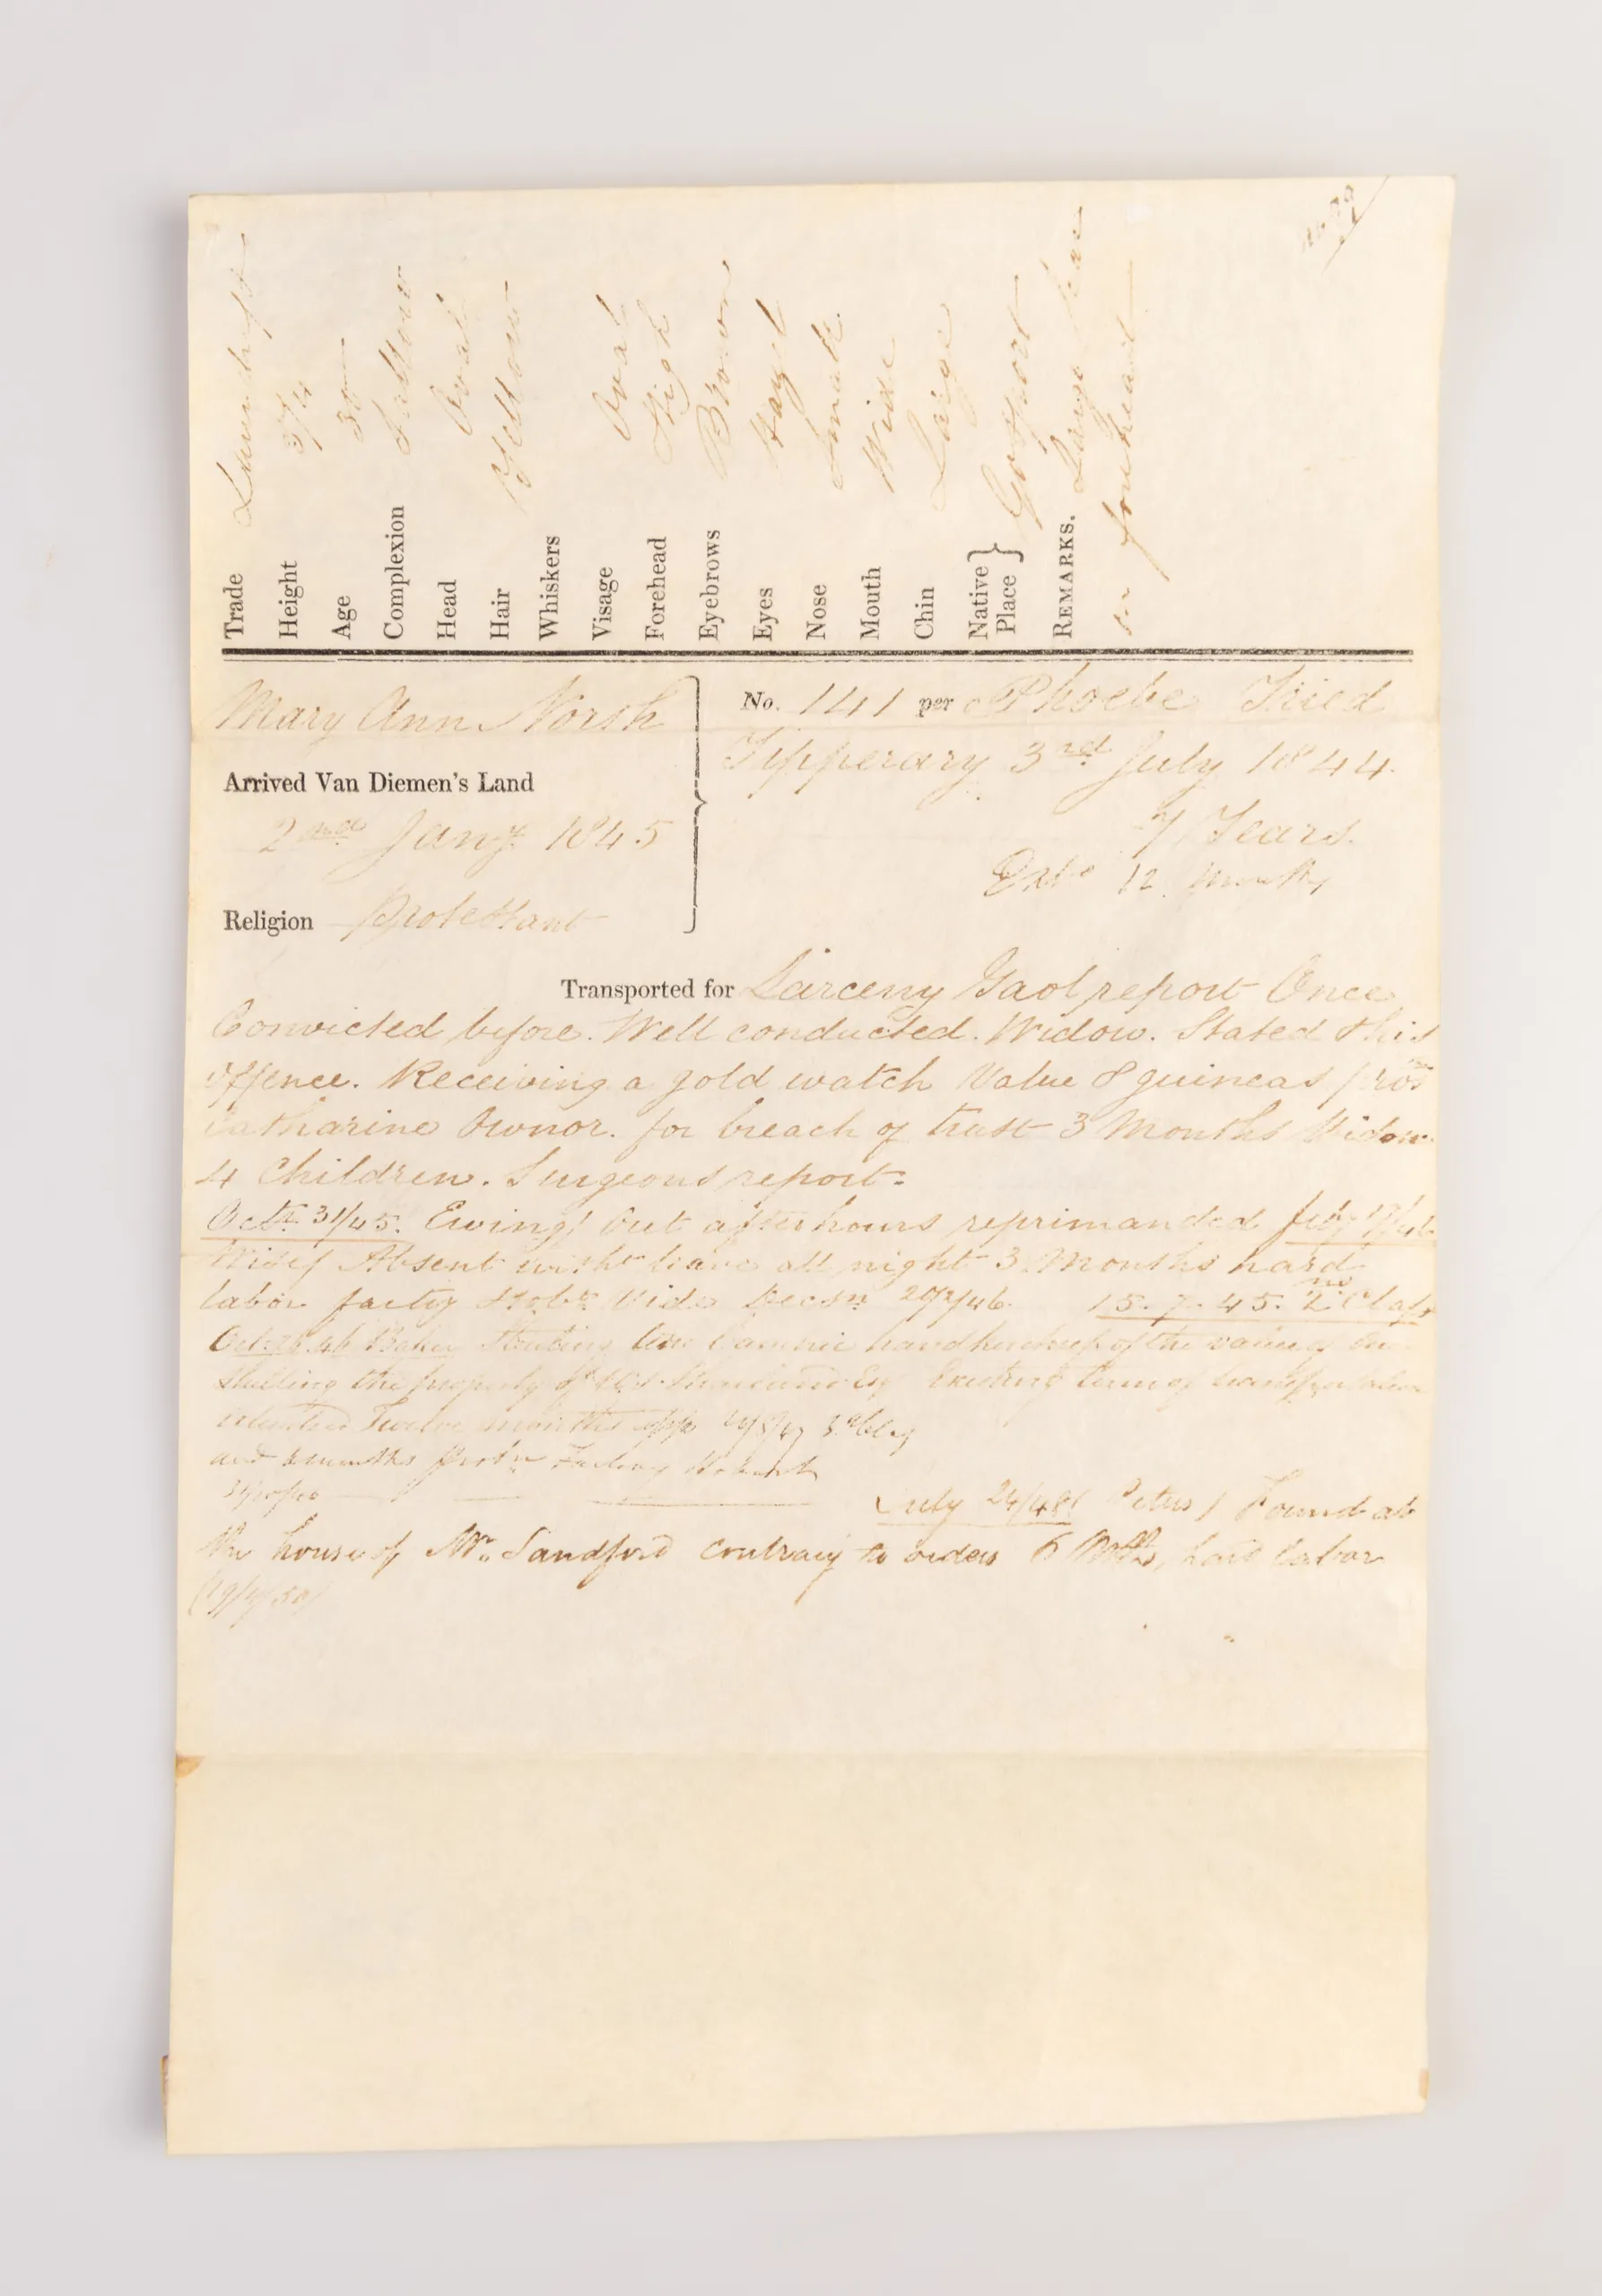 Trade Laundress
Height 5/4
Age 30
Complexion Sallow
Head Oval
Hair Yellow
Whiskers
Visage Oval
Forehead High
Eyebrows Brown
Eyes Hazel
Nose Small
Mouth Wide
Chin Large
Native Place } Gosport
REMARKS. Large Scar
on forehead
Mary Ann North
No. 141 per Phoebe Tried
Tipperary 3rd July 1844.
Arrived Van Diemen's Land
2nd Jany. 1845
7 Years.
Extd 12 Months
Religion Protestant
Transported for Larceny Gaol report Once
Convicted before. Well conducted. Widow. Stated this
offence. Receiving a gold watch Value 8 guineas pros
Catharine Ownor. for breach of trust 3 Months Widow
4 Children. Surgeons report=
Octr. 31/45. Ewing/ Out after hours reprimanded Feby 17/46
Absent witht leave all night 3 Months hard
labor factry Hobn Vide Decsn 20/2/46. 15.7.45. 2nd Class
Oct 46 Baker Stealing One Cambric handkerchief of the value of One
Shilling the property of Esq Existing term of transportation
extended Twelve months
and months Factory Hobart
July 24/48/ Peters / Found at
the house of Mr. Sandford contrary to orders 6 Mths, hard labor